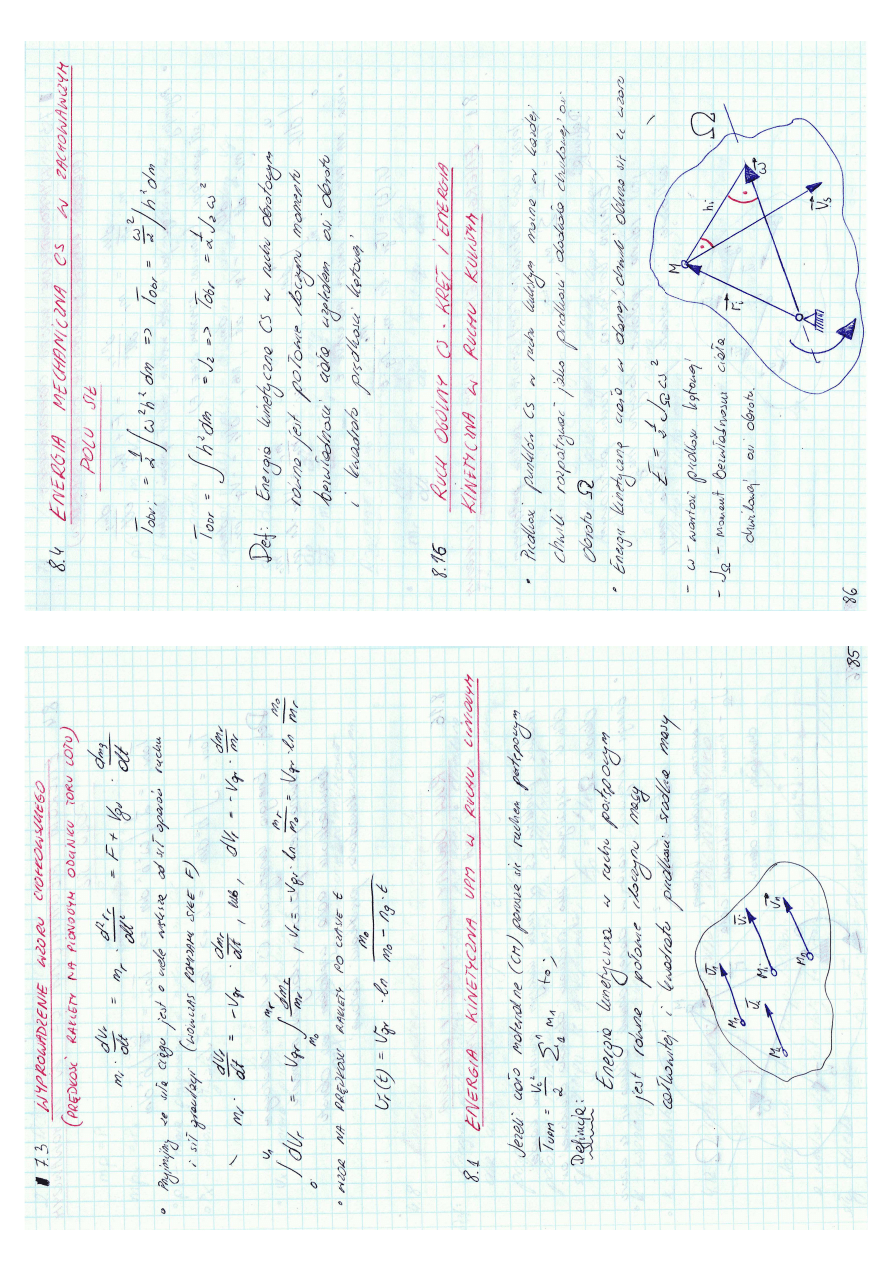 7.3 WYPROWADZENIE WZORU CIOŁKOWSKIEGO
(PRĘDKOŚĆ RAKIETY NA PIONOWYM ODCINKU TORU LOTU)
mᵢ · dVr/dt = mr · d²rr/dt² = F + Vgr · dmg/dt
• Przyjmijmy że siła ciągu jest o wiele większa od sił oporów ruchu
i sił grawitacji (WÓWCZAS POMIJAMY SIŁĘ F)
mr · dVr/dt = -Vgr · dmr/dt , LUB , dVr = -Vgr · dmr/mr
∫ dVr = -Vgr ∫ dmr/mr , Vr = -Vgr · ln mr/m₀ = Vgr · ln m₀/mr
• WZÓR NA PRĘDKOŚĆ RAKIETY PO CZASIE t
Ur(t) = Vgr · ln m₀/(m₀ - ng · t)
8.1 ENERGIA KINETYCZNA UPM W RUCHU LINIOWYM
Jeżeli ciało materialne (CM) porusza się ruchem postępowym
to;
Definicja:
Energia kinetyczna w ruchu postępowym
jest równa połowie iloczynu masy
całkowitej i kwadratu prędkości środka masy
85
8.4 ENERGIA MECHANICZNA CS W ZACHOWAWCZYM
POLU SIŁ
Tobr = 1/2 ∫ ω²h² dm => Tobr = ω²/2 ∫ h² dm
Tobr = ∫ h² dm = J₂ => Tobr = 1/2 J₂ ω²
Def: Energia kinetyczna CS w ruchu obrotowym
równa jest połowie iloczynu momentu
bezwładności ciała względem osi obrotu
i kwadratu prędkości kątowej
8.16 RUCH OGÓLNY CS. KRĘT I ENERGIA
KINETYCZNA W RUCHU KULISTYM
• Prędkość punktów CS w ruchu kulistym można w każdej
chwili rozpatrywać jako prędkości dookoła chwilowej osi
obrotu Ω
• Energię kinetyczną ciała w danej chwili oblicza się ze wzoru
E = 1/2 J_Ω ω²
- ω - wartość prędkości kątowej
- J_Ω - moment bezwładności ciała
chwilowej osi obrotu.
M hi Ω
ri ω
Vs
86